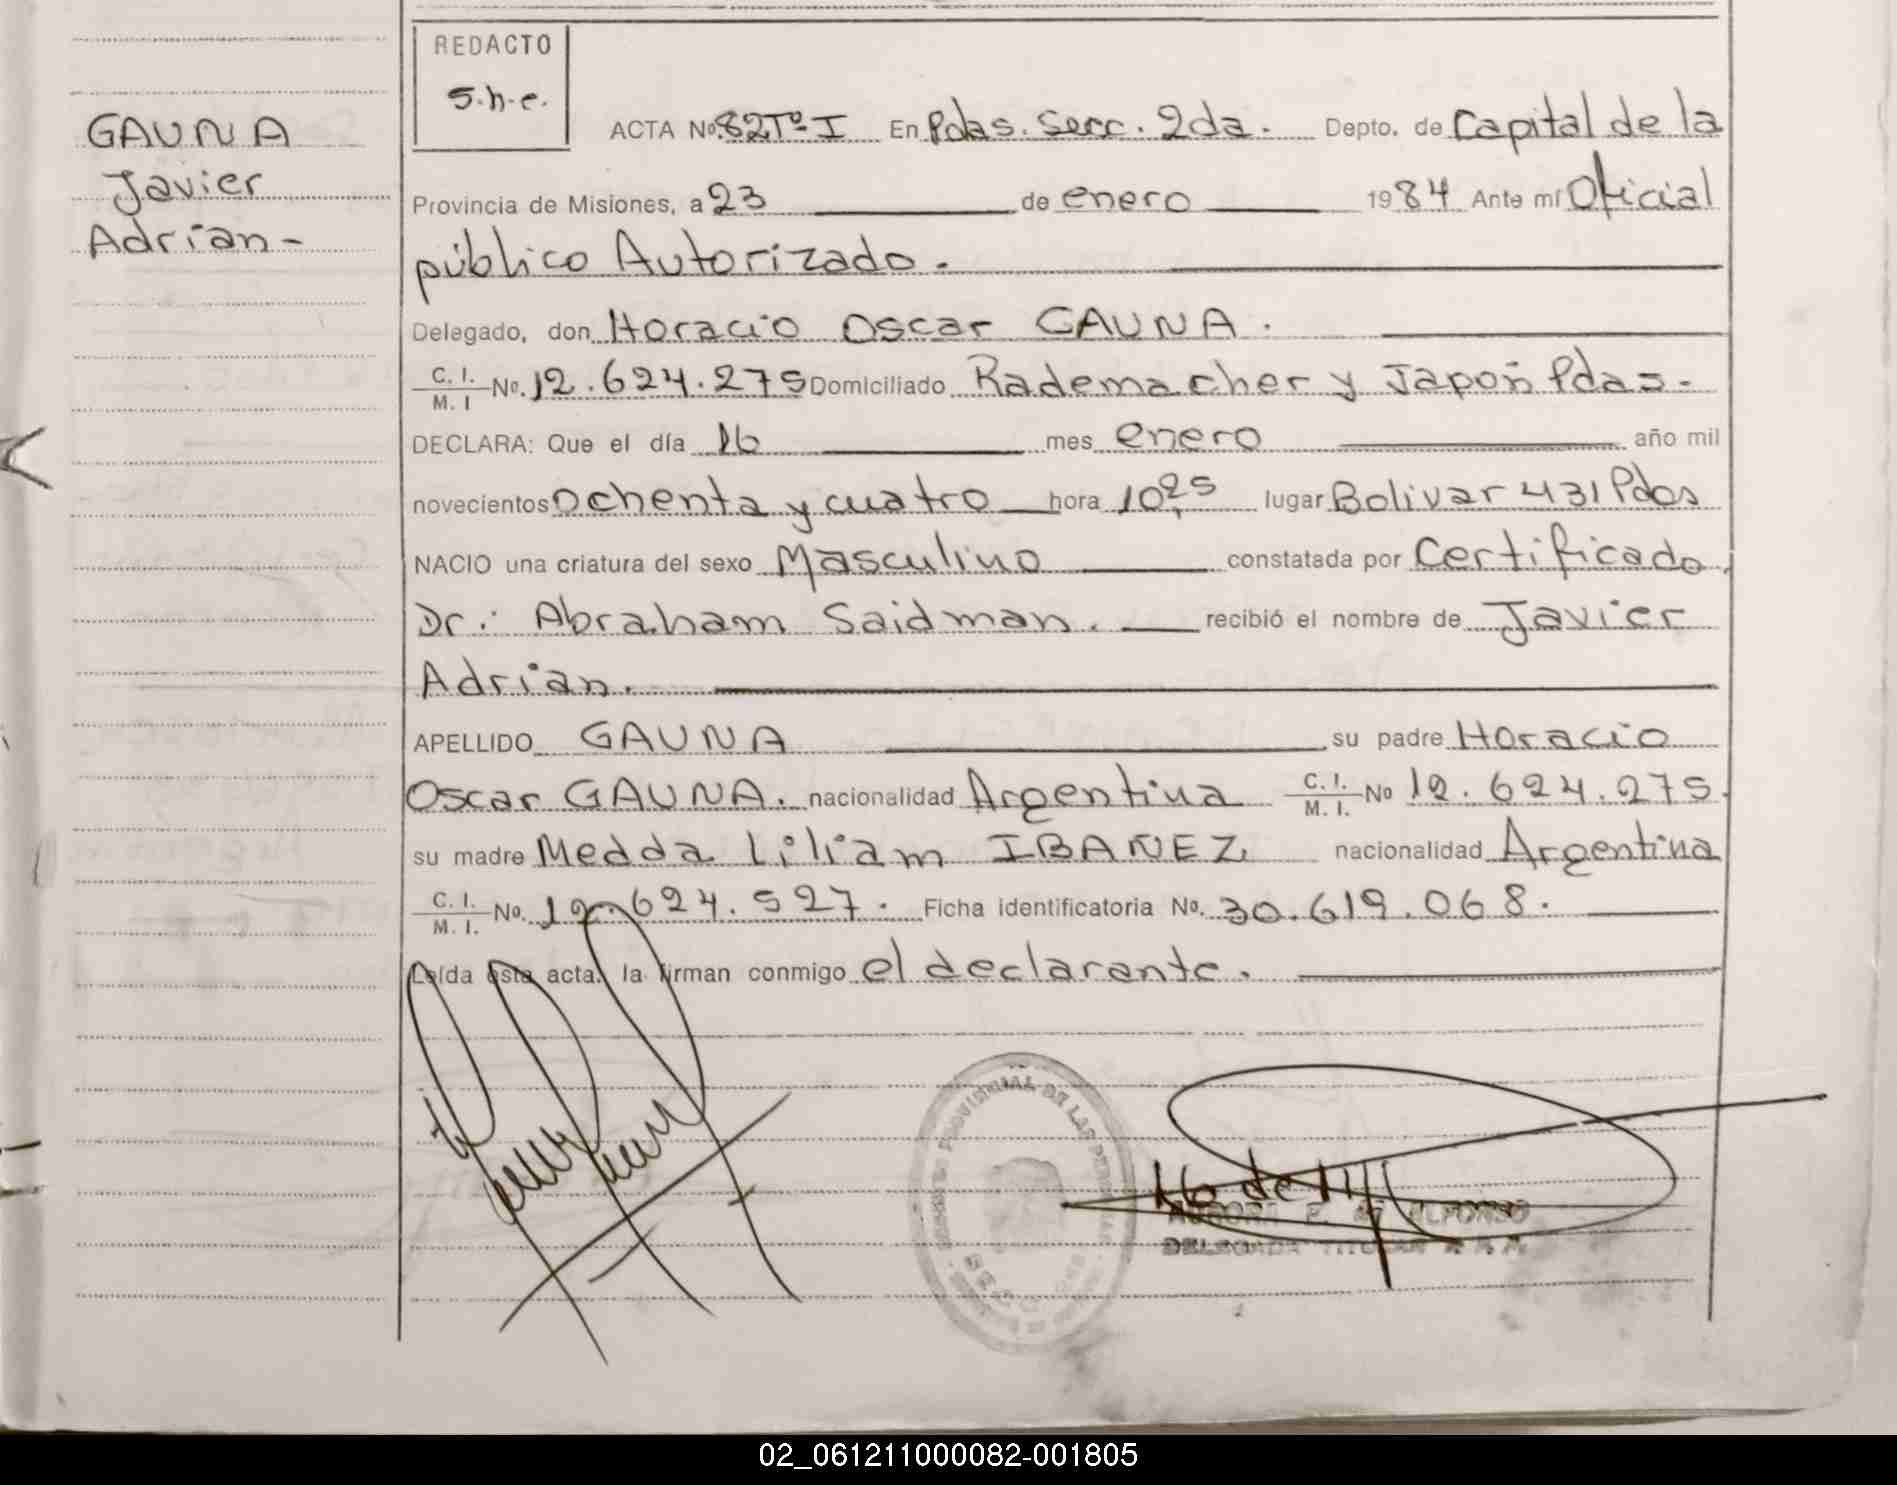 GAUNA
Javier
Adrian-
REDACTO
S.h.e.
ACTA Nº 82 Tº I En Pdas. Secc. 2da. Depto. de Capital de la
Provincia de Misiones, a 23 de enero 1984 Ante mí Oficial
público Autorizado.
Delegado, don Horacio Oscar GAUNA.
C. I. M. I No. 12.624.275 Domiciliado Rademacher y Japón Pdas-
DECLARA: Que el día 16 mes enero año mil
novecientos ochenta y cuatro hora 10,25 lugar Bolivar 431 Pdas
NACIO una criatura del sexo Masculino constatada por Certificado
Dr.: Abraham Saidman. recibió el nombre de Javier
Adrian.
APELLIDO GAUNA su padre Horacio
Oscar GAUNA. nacionalidad Argentina C. I. M. I. No 12.624.275.
su madre Medda Liliam IBAÑEZ nacionalidad Argentina
C. I. M. I. No. 12.624.527. Ficha identificatoria No. 30.619.068.
Leída esta acta, la firman conmigo el declarante.
PROVINCIAL DE LAS PERSONAS
AURORA E. de ALFONSO
DELEGADA TITULAR R. P. P.
02_061211000082-001805